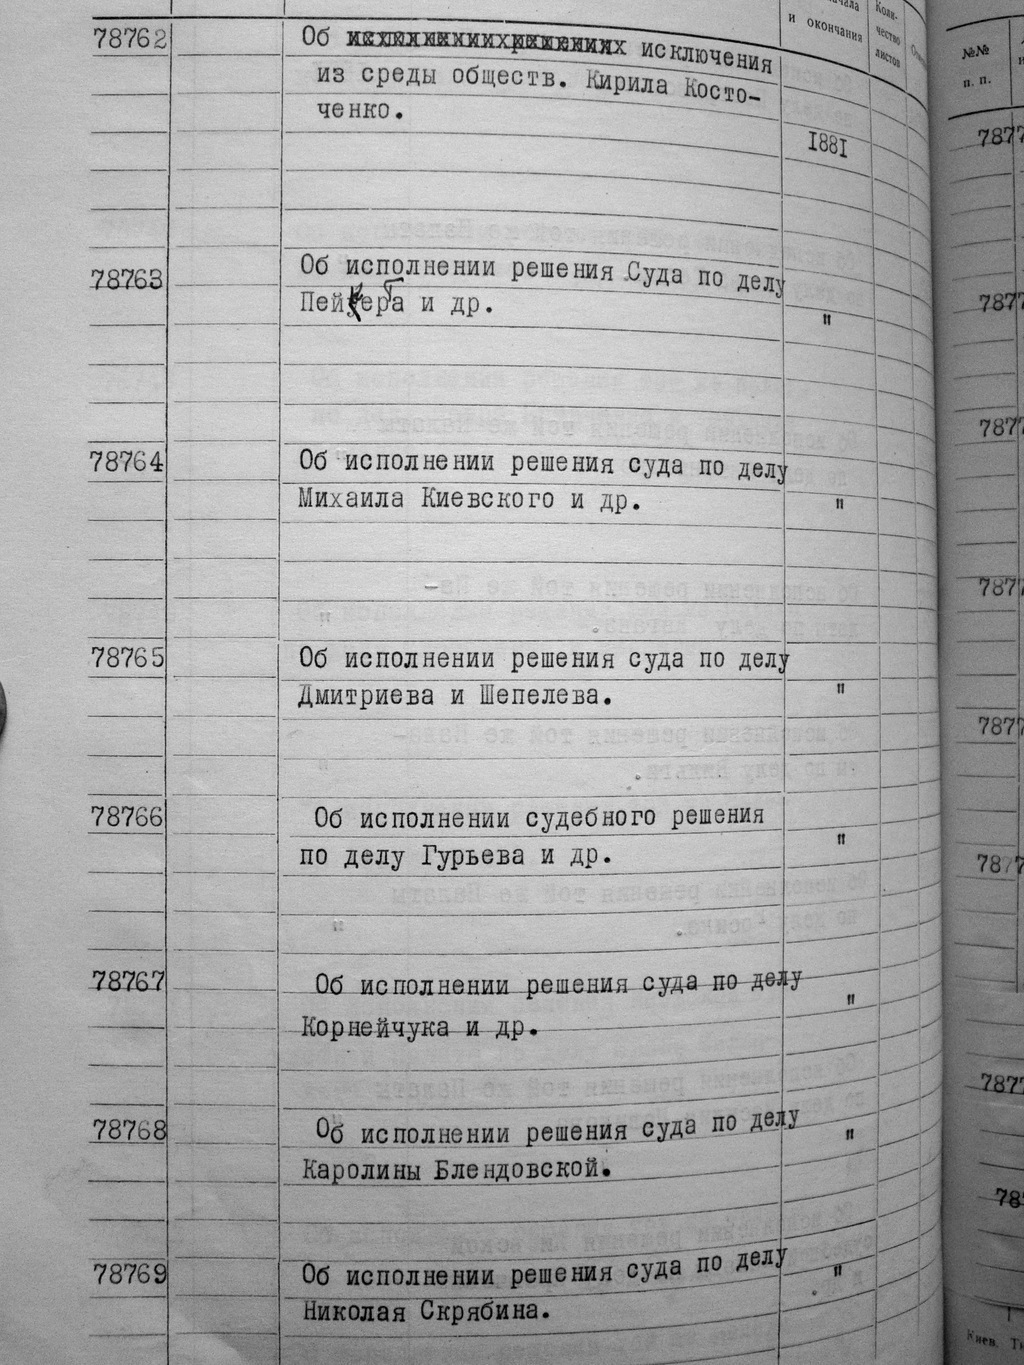 и окончания
Коли-
чество
листов
№№
п. п.
78762 Об исключения
из среды обществ. Кирила Косто-
ченко.
1881
78763 Об исполнении решения Суда по делу
Пейкера и др. "
78764 Об исполнении решения суда по делу
Михаила Киевского и др. "
78765 Об исполнении решения суда по делу
Дмитриева и Шепелева. "
78766 Об исполнении судебного решения
по делу Гурьева и др. "
78767 Об исполнении решения суда по делу
Корнейчука и др. "
78768 Об исполнении решения суда по делу
Каролины Блендовской. "
78769 Об исполнении решения суда по делу
Николая Скрябина. "
7877
7877
7877
7877
7877
7877
7877
787
Киев.